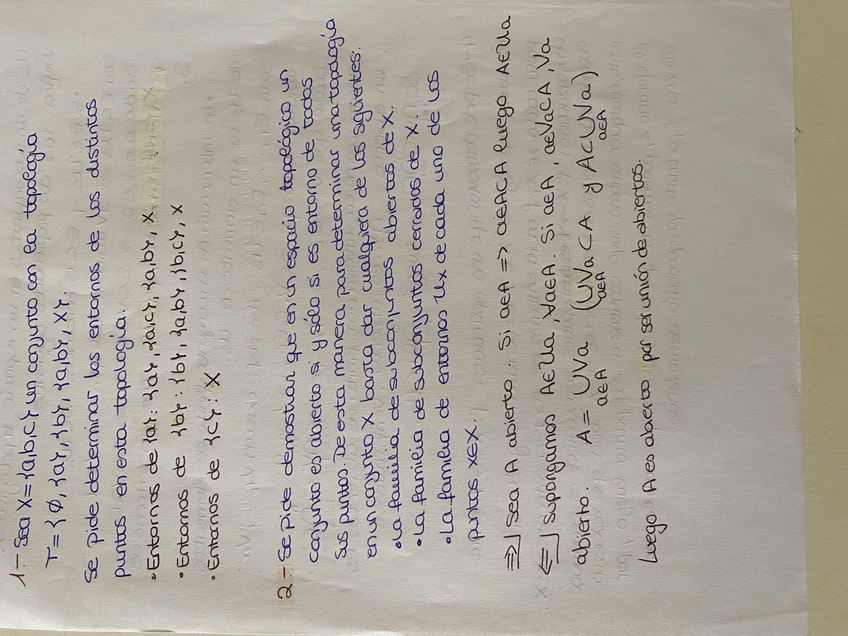 1- Sea X={a,b,c} un conjunto con la topología
T={∅,{a},{b},{a,b},X}.
Se pide determinar los entornos de los distintos
puntos en esta topología.
• Entornos de {a}: {a}, {a,c}, {a,b}, X
• Entornos de {b}: {b}, {a,b}, {b,c}, X
• Entornos de {c}: X
2- Se pide demostrar que en un espacio topológico un
conjunto es abierto si y sólo si es entorno de todos
sus puntos. De esta manera para determinar una topología
en un conjunto X basta dar cualquiera de los siguientes:
• La familia de subconjuntos abiertos de X.
• La familia de subconjuntos cerrados de X.
• La familia de entornos Ux de cada uno de los
puntos x∈X.
⇒⌋ Sea A abierto. Si a∈A => a∈A⊂A luego A∈Ua
⇐⌋ Supongamos A∈Ua, ∀a∈A. Si a∈A, a∈Va⊂A, Va
abierto. A = ∪Va (∪Va⊂A y A⊂∪Va)
a∈A a∈A a∈A
Luego A es abierto por ser unión de abiertos.